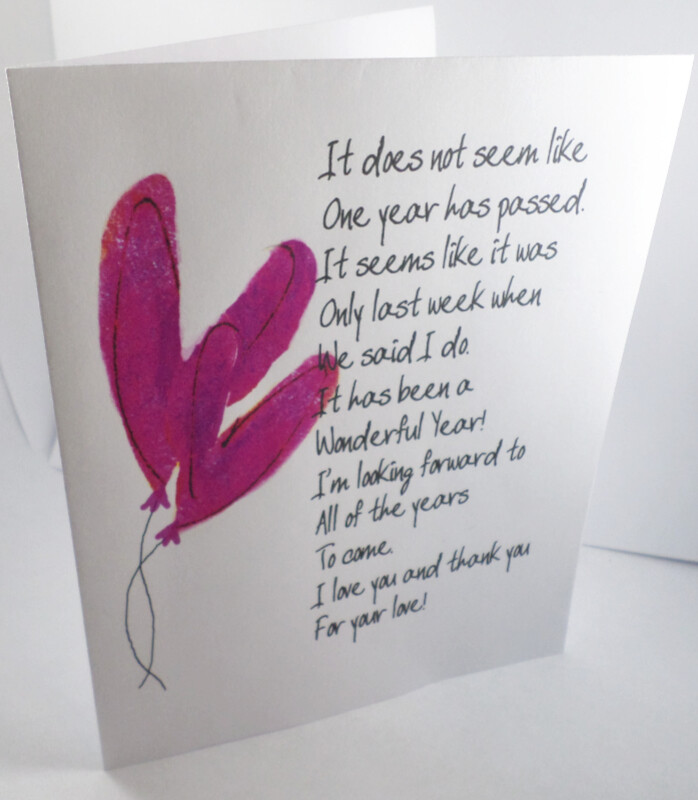 It does not seem like
One year has passed.
It seems like it was
Only last week when
We said I do.
It has been a
Wonderful Year!
I'm looking forward to
All of the years
To come.
I love you and thank you
For your love!